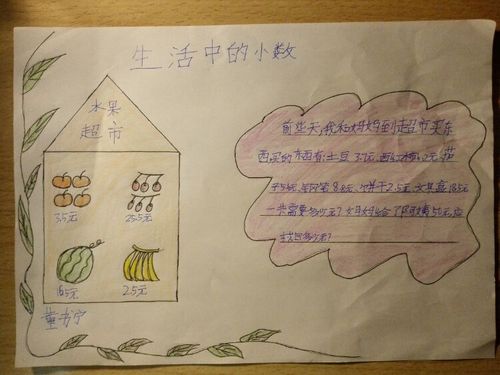 生活中的小数
水果
超市
3.5元
25.5元
16.5元
2.5元
童书宁
前些天,我和妈妈到超市买东
西买的东西有:土豆3.7元,西红柿
元,饼干2.5元,文具盒18.5元
一共需要多少元?妈妈给了阿姨50元,应
找回多少元?